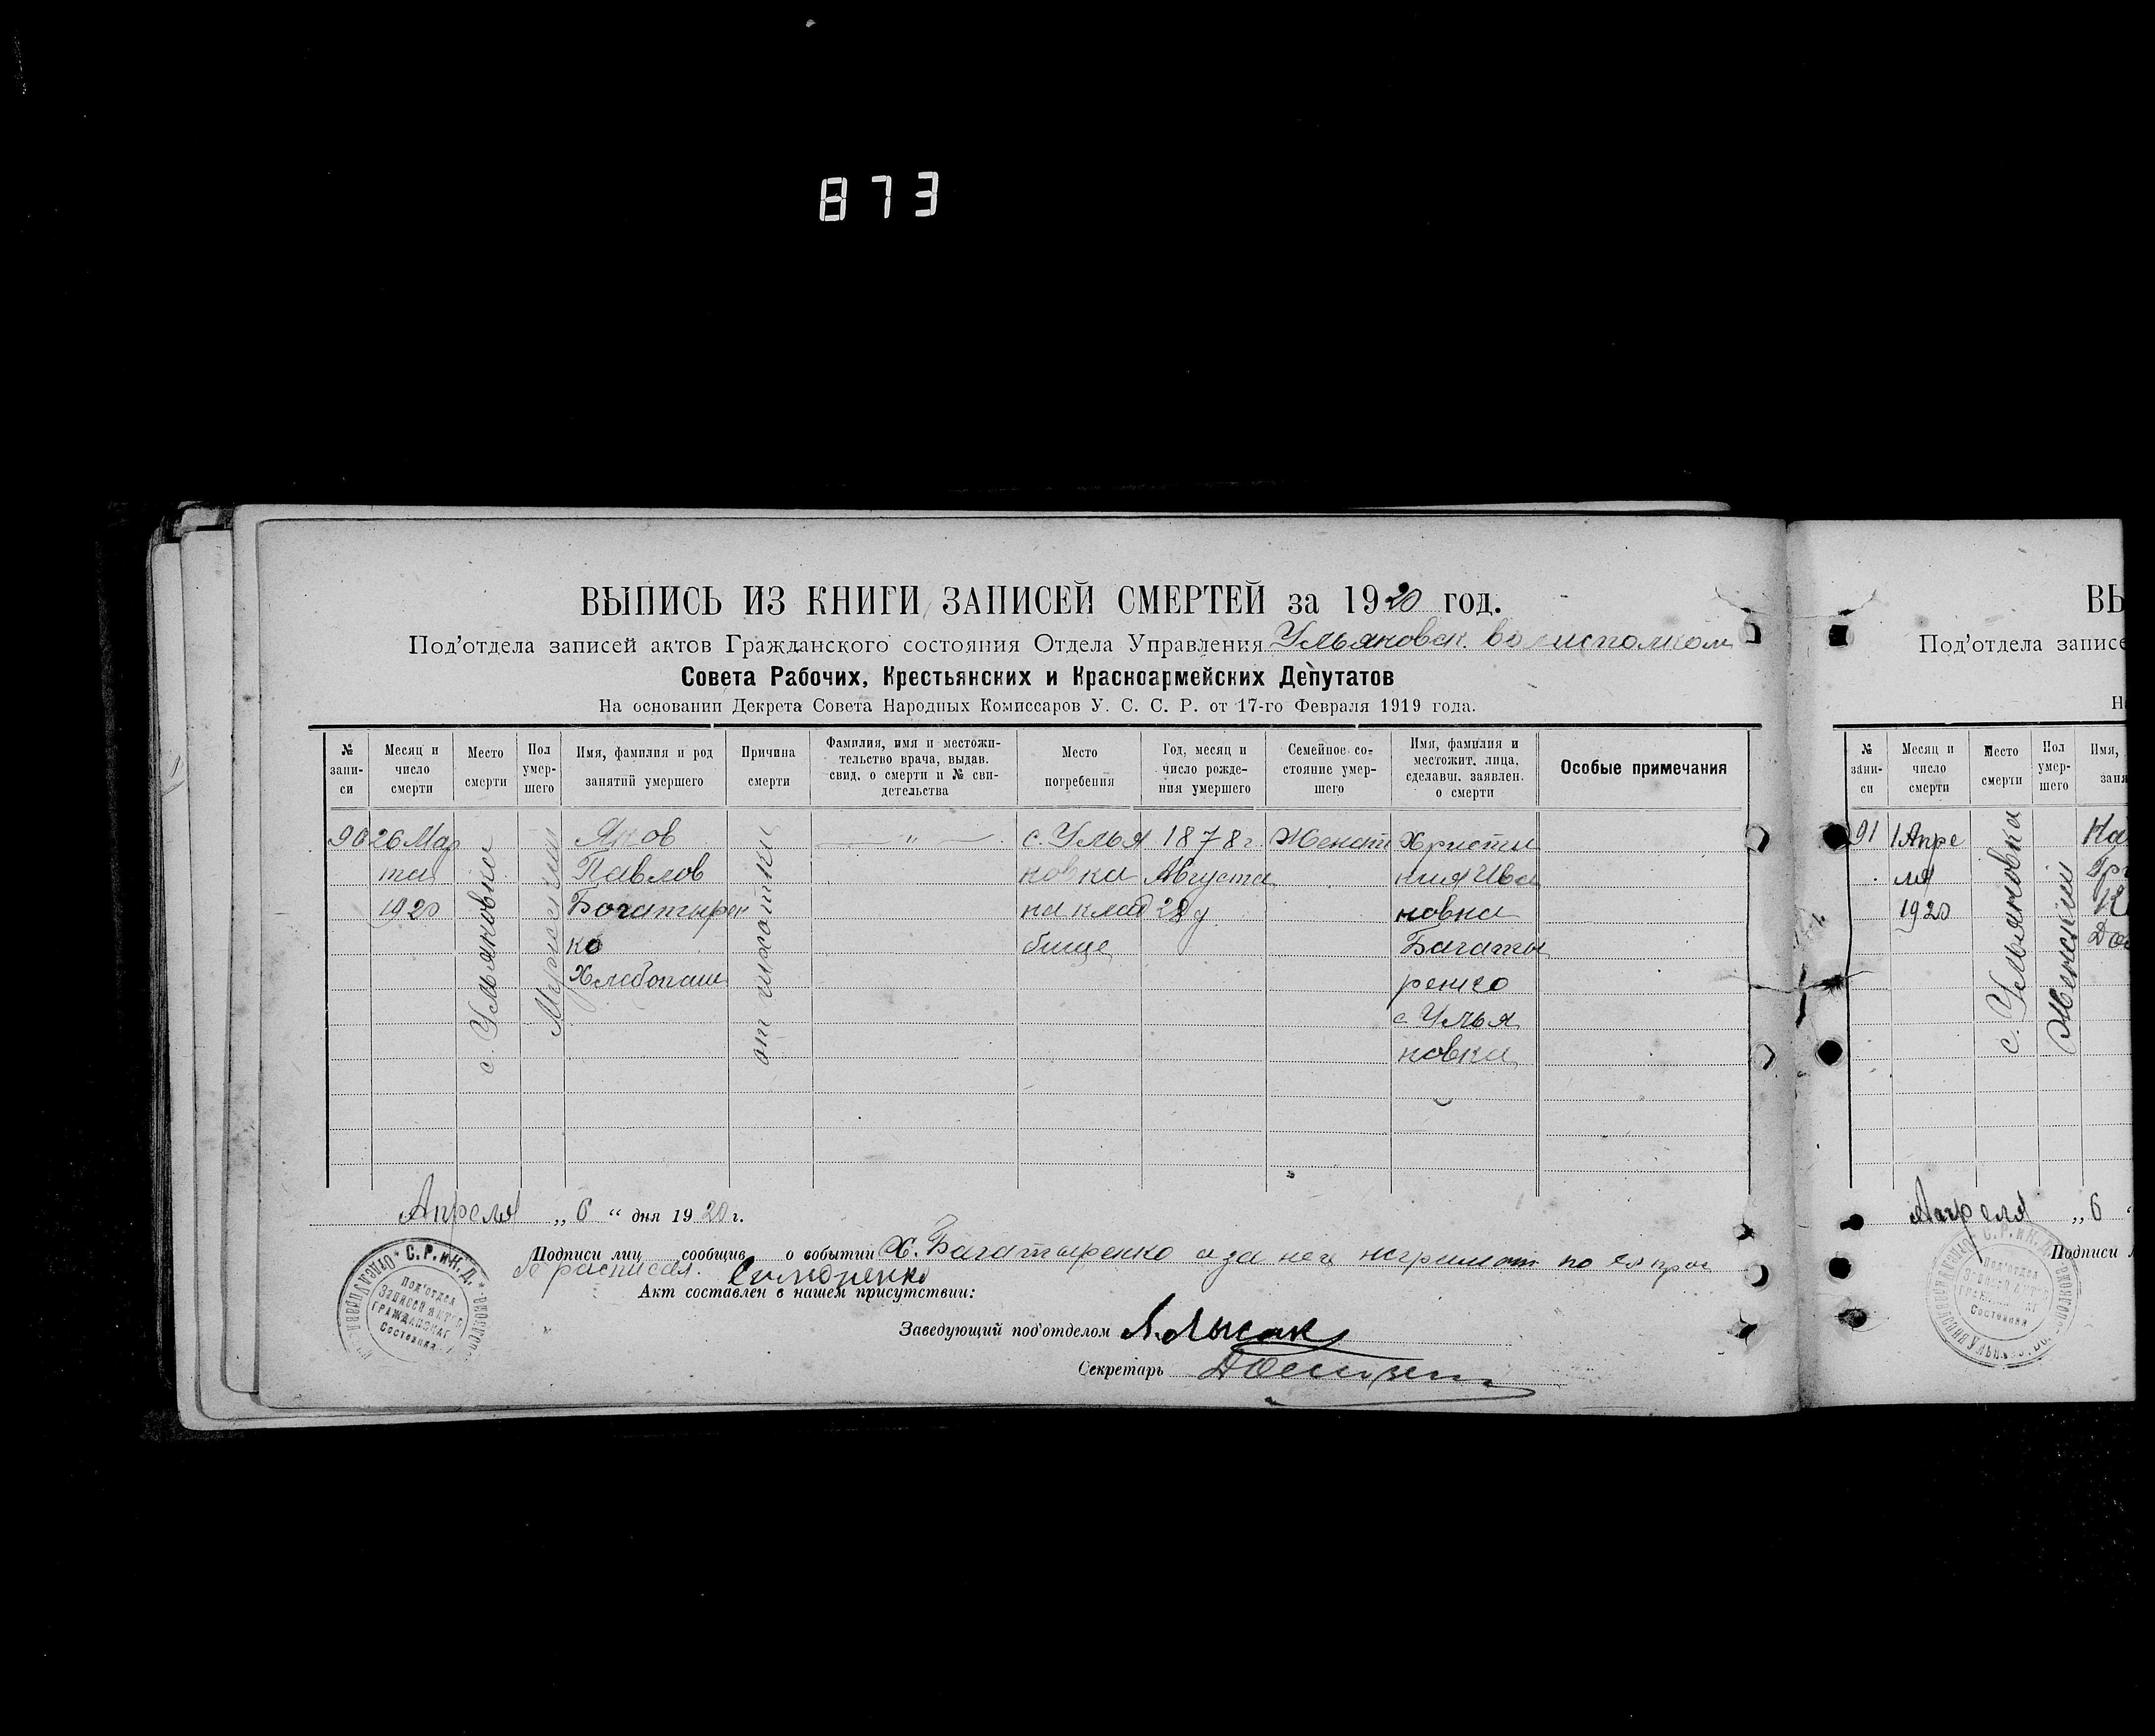 873
ВЫПИСЬ ИЗ КНИГИ ЗАПИСЕЙ СМЕРТЕЙ за 1920 год.
Под’отдела записей актов Гражданского состояния Отдела Управления Ульяновск. волисполком
Совета Рабочих, Крестьянских и Красноармейских Депутатов
На основании Декрета Совета Народных Комиссаров У. С. С. Р. от 17-го Февраля 1919 года.
№ запи-
си
Месяц и
число
смерти
Место
смерти
Пол
умер-
шего
Имя, фамилия и род
занятий умершего
Причина
смерти
Фамилия, имя и местожи-
тельство врача, выдав.
свид. о смерти и № сви-
детельства
Место
погребения
Год, месяц и
число рожде-
ния умершего
Семейное со-
стояние умер-
шего
Имя, фамилия и
местожит. лица,
сделавш. заявлен.
о смерти
Особые примечания
90
26 Мар
та
1920
с. Ульяновка
Мужской
Яков
Павлов
Богатырен
ко
Хлебопаш
от чихотки
— " —
с. Улья
новка
на клад
бище
1878 г.
Августа
28 д.
Женат
Христи
ния Ива
новна
Багаты
ренко
с. Улья
новка
Апреля „ 6 “ дня 1920 г.
Подписи лиц сообщив о событии Х. Багатыренко а за нея неграмот по ея прос
бе расписал.
Акт составлен в нашем присутствии:
Заведующий под’отделом Лысак
Секретарь
С. Р. и К. Д.
Под’отдел
Записей Актов
ГРАЖДАНСКАГ
Состояния
ВЫ
Под’отдела записе
Н
№
запи-
си
Месяц и
число
смерти
Место
смерти
Пол
умер-
шего
Имя,
заня
91
1 Апре
ля
1920
с. Ульяновка
Женский
Апреля „ 6 “
Подписи л
С. Р. и К. Д.
Под’отдел
Состояния